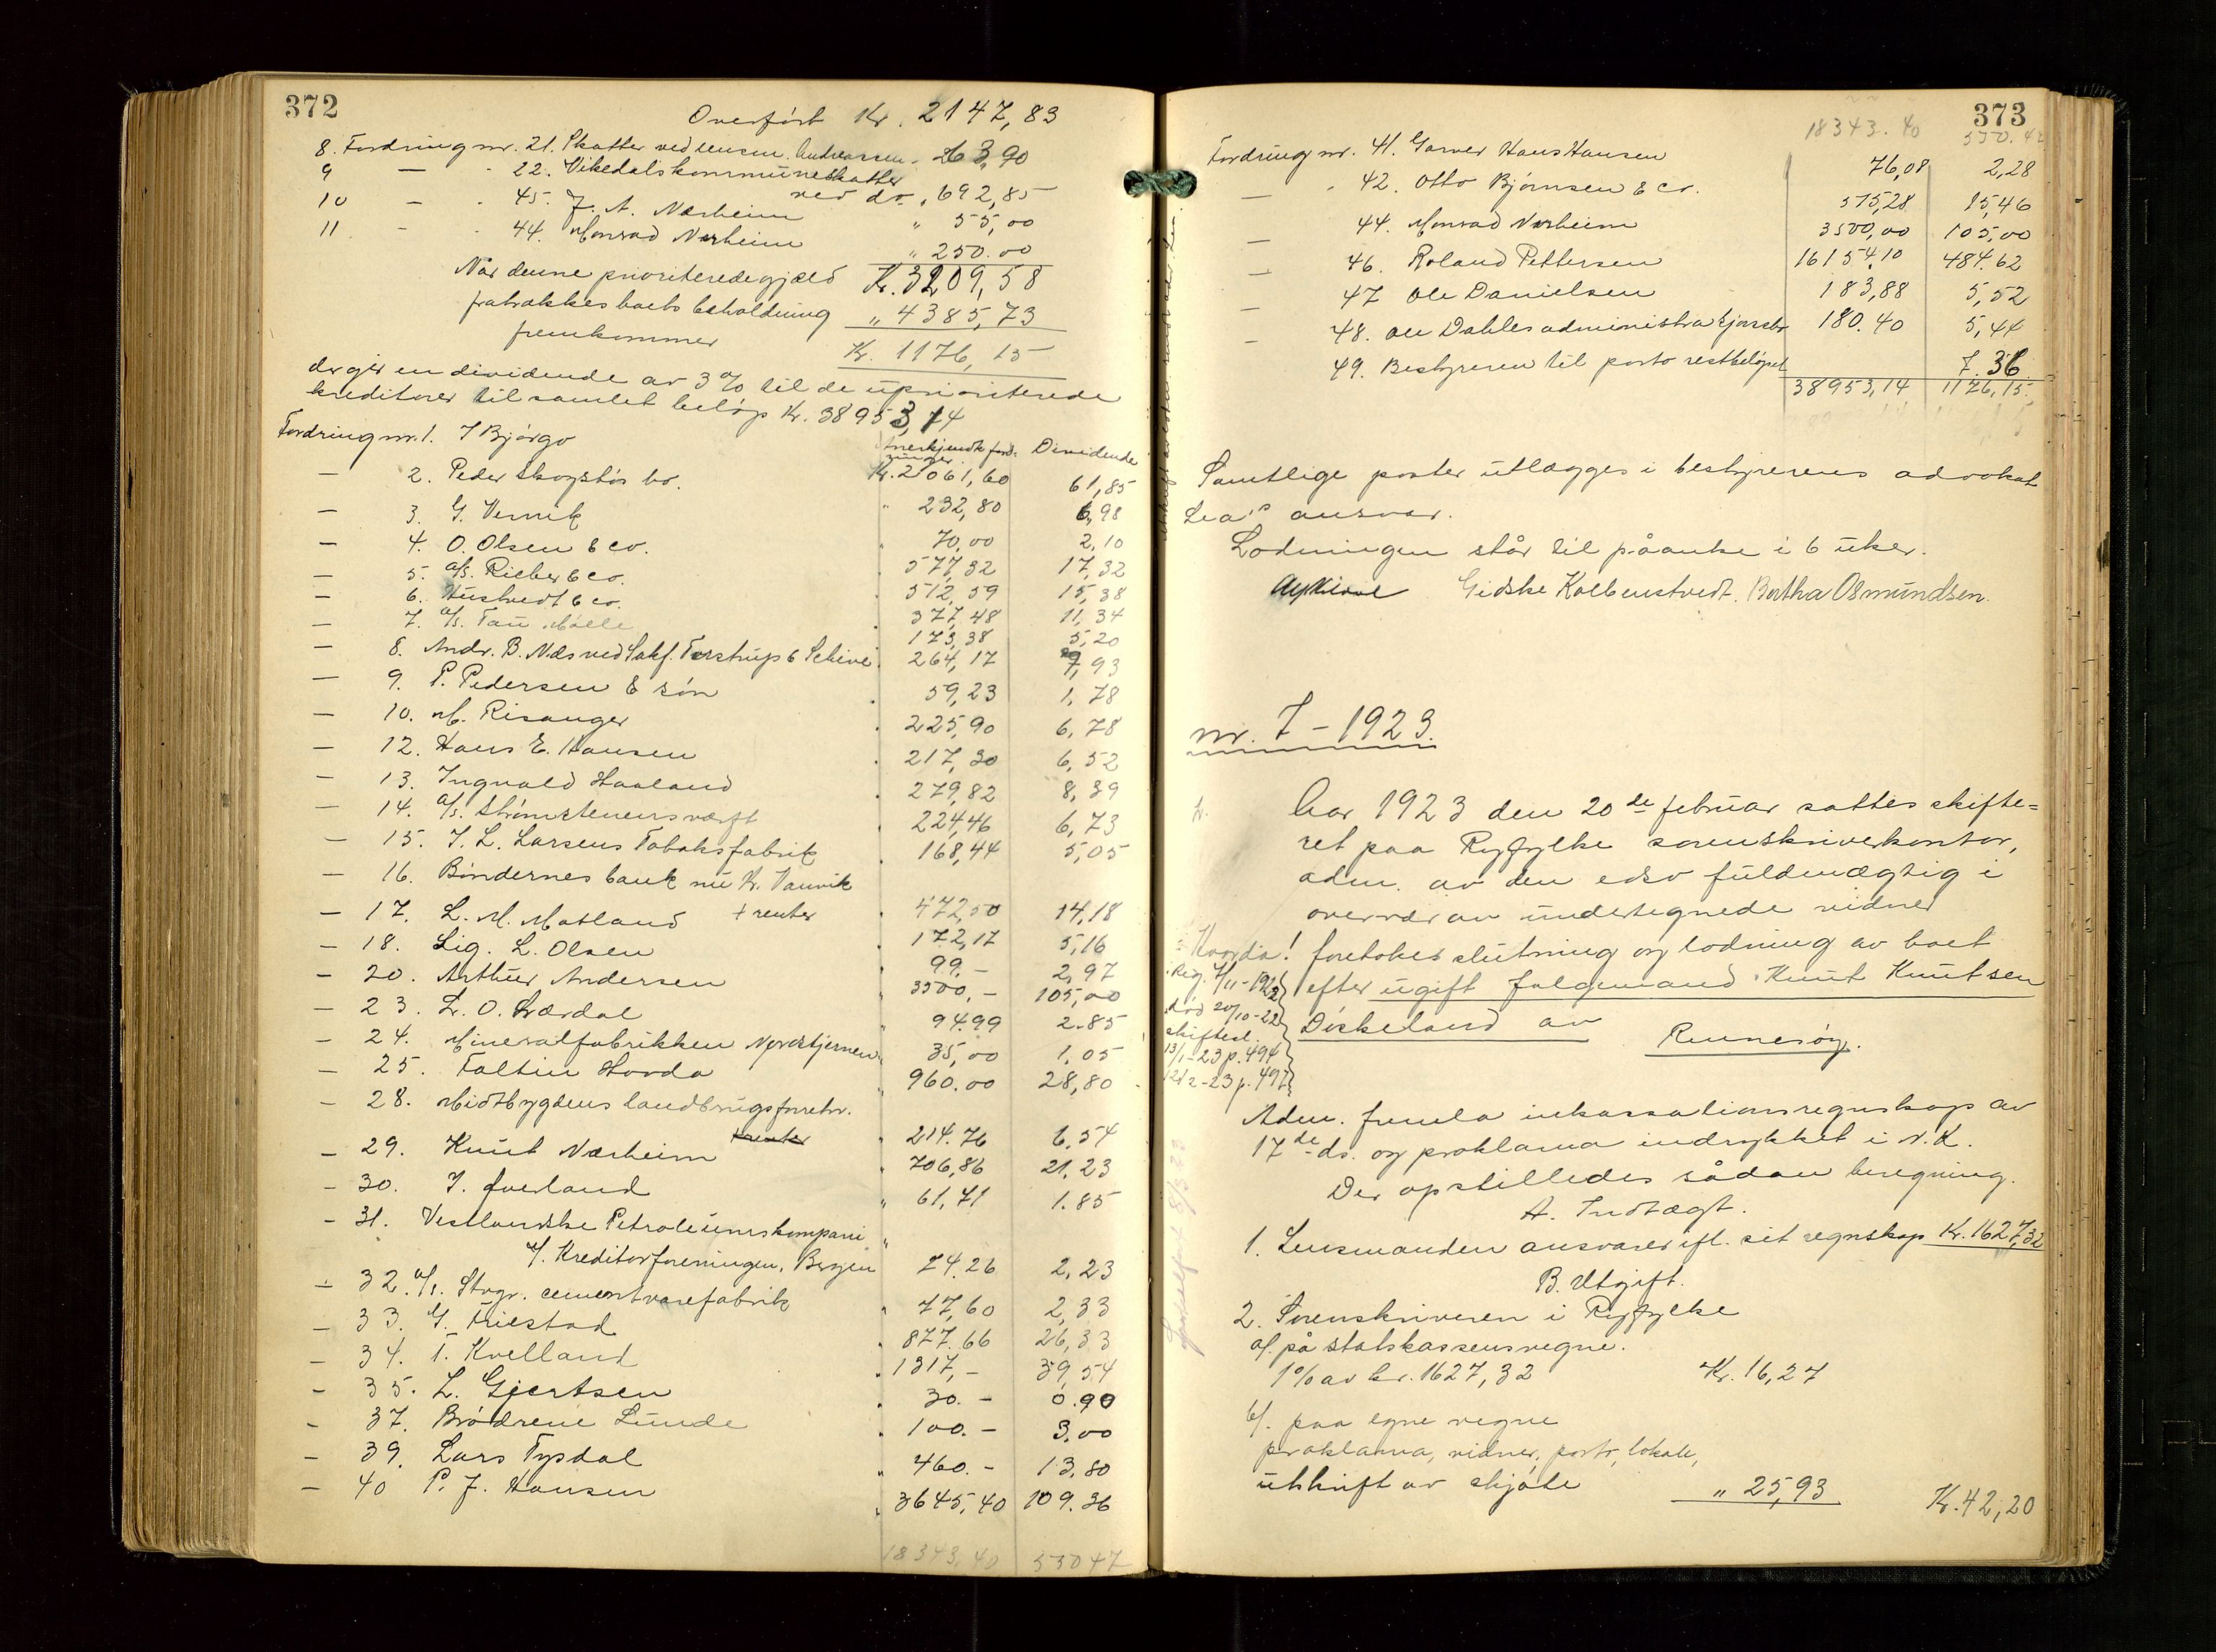 372
Overført Kr. 2147,83
8. Fordring nr. 21. Skatter ved lensm. Andreassen " 63,90
9 — " 22. Vikedals kommuneskatter
ved do. " 692,85
10 — " 45. J. A. Nærheim " 55,00
11 - " 44. Monrad Nærheim " 250.00
Når denne prioriterede gjæld Kr. 3209,58
fratrækkes boets beholdning " 4385,73
fremkommer Kr. 1176,15
der gir en dividende av 3% til de uprioriterede
kreditorer til samlet beløp Kr. 38953,14
Anerkjendt fordringer Dividende
Fordring nr. 1. J Bjørgo Kr. 2061,60 61,85
— 2. Peder Skogstøs bo. " 232,80 6,98
— 3. G. Vernik " 70,00 2,10
— 4. O. Olsen & co. " 577,32 17,32
— 5. a/s. Rieber & co. " 512,59 15,38
— 6. Hustvedt & co. " 377,48 11,34
— 7. a/s. Tau Mølle " 173,38 5,20
— 8. Andr. B. Næs ved Sakf. Torstrup & Schive " 264,17 7,93
— 9. P. Pedersen & søn " 59,23 1,78
— 10. M. Risanger " 225,90 6,78
— 12. Hans E. Hansen " 217,30 6,52
— 13. Ingvald Haaland " 279,82 8,39
— 14. a/s. Strømstensværft " 224,46 6,73
— 15. J. L. Larsens Tobaksfabrik " 168,44 5,05
— 16. Bøndernes bank nu Kr. Vanvik
+ renter " 472,50 14,18
— 17. L. M. Matland " 172,17 5,16
— 18. Sig. L. Olsen " 99.- 2,97
— 20. Arthur Andersen " 3500,- 105,00
— 23. L. O. Lærdal " 94.99 2.85
— 24. Mineralfabrikken Nordstjernen " 35,00 1,05
— 25. Faltin Hovda " 960.00 28,80
— 28. Midtbygdens landbrugsforretn.
+ renter " 214.76 6,54
— 29. Knut Nærheim " 706,86 21,23
— 30. J. Øverland " 61,71 1.85
— 31. Vestlandske Petroleumskompani
v/. Kreditorforeningen, Bergen " 74.26 2,23
— 32. a/s. Stvgr. cementvarefabrik " 77,60 2,33
— 33. G. Friestad " 877.66 26,33
— 34. T. Kvelland " 1317,- 39,54
— 35. L. Gjertsen " 30.- 0.90
— 37. Brødrene Lunde " 100.- 3.00
— 39. Lars Tysdal " 460.- 13,80
— 40 P. J. Hansen " 3645,40 109.36
18343,40 55047
373
18343.40 550.42
Fordring nr. 41. Garver Hans Hansen 76,08 2,28
— " 42. Otto Bjørnsen & co. 515,28 15,46
— 44. Monrad Nærheim 3500,00 105,00
— 46. Roland Pettersen 16154.10 484.62
— 47 Ole Danielsen 183,88 5,52
— 48. Ole Dahles administrasjonsbo 180.40 5,44
49. Bestyreren til porto restbeløpet 7.36
38953,14 1176,15.
Samtlige poster utlægges i bestyrerens advokat
Lea's ansvar.
Lodningen står til påanke i 6 uker.
Gidske Kolbenstvedt. Bertha Osmundsen.
nr. 7 - 1923.
Aar 1923 den 20de februar sattes skifte=
ret paa Ryfylke sorenskriverkontor,
adm. av den edsv fuldmægtig i
overvær av undertegnede vidner
Hvorda! foretokes slutning og lodning av boet
efter ugift folgemand Knut Knutsen
Diskeland av Rennesøy.
Reg. 7/11-1922
død 20/10-22
skiftesl.
13/1-23 p. 494
12/2-23 p. 497
Adm. fremla inkassationsregnskap av
17de ds. og proklama indrykket i N. K.
Der opstilledes sådan beregning.
A. Indtægt.
1. Lensmanden ansvarer ifl. sit regnskap Kr. 1627,32
B. Utgift.
2. Sorenskriveren i Ryfylke
a/. på statskassens vegne.
1% av kr. 1627,32 Kr. 16,27
b/. paa egne vegne
proklama, vidner, porto, lokale,
utskrift av skjøte " 25,93 Kr. 42,20